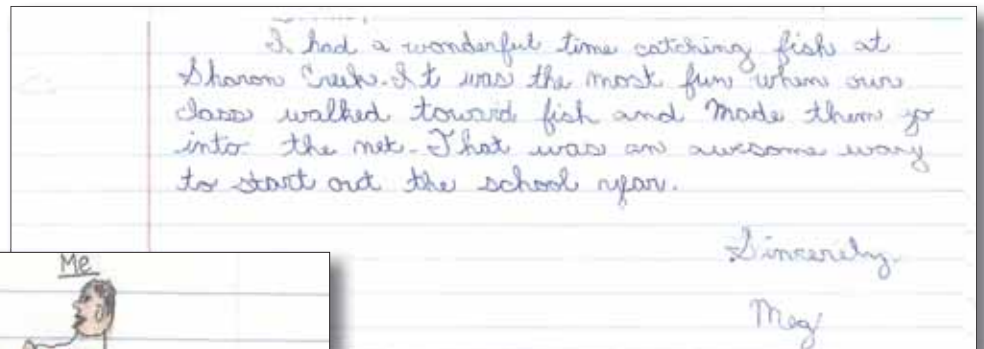 I had a wonderful time catching fish at
Sharon Creek. It was the most fun when our
class walked toward fish and Made them go
into the net. That was an awesome way
to start out the school year.
Sincerely,
Meg
Me